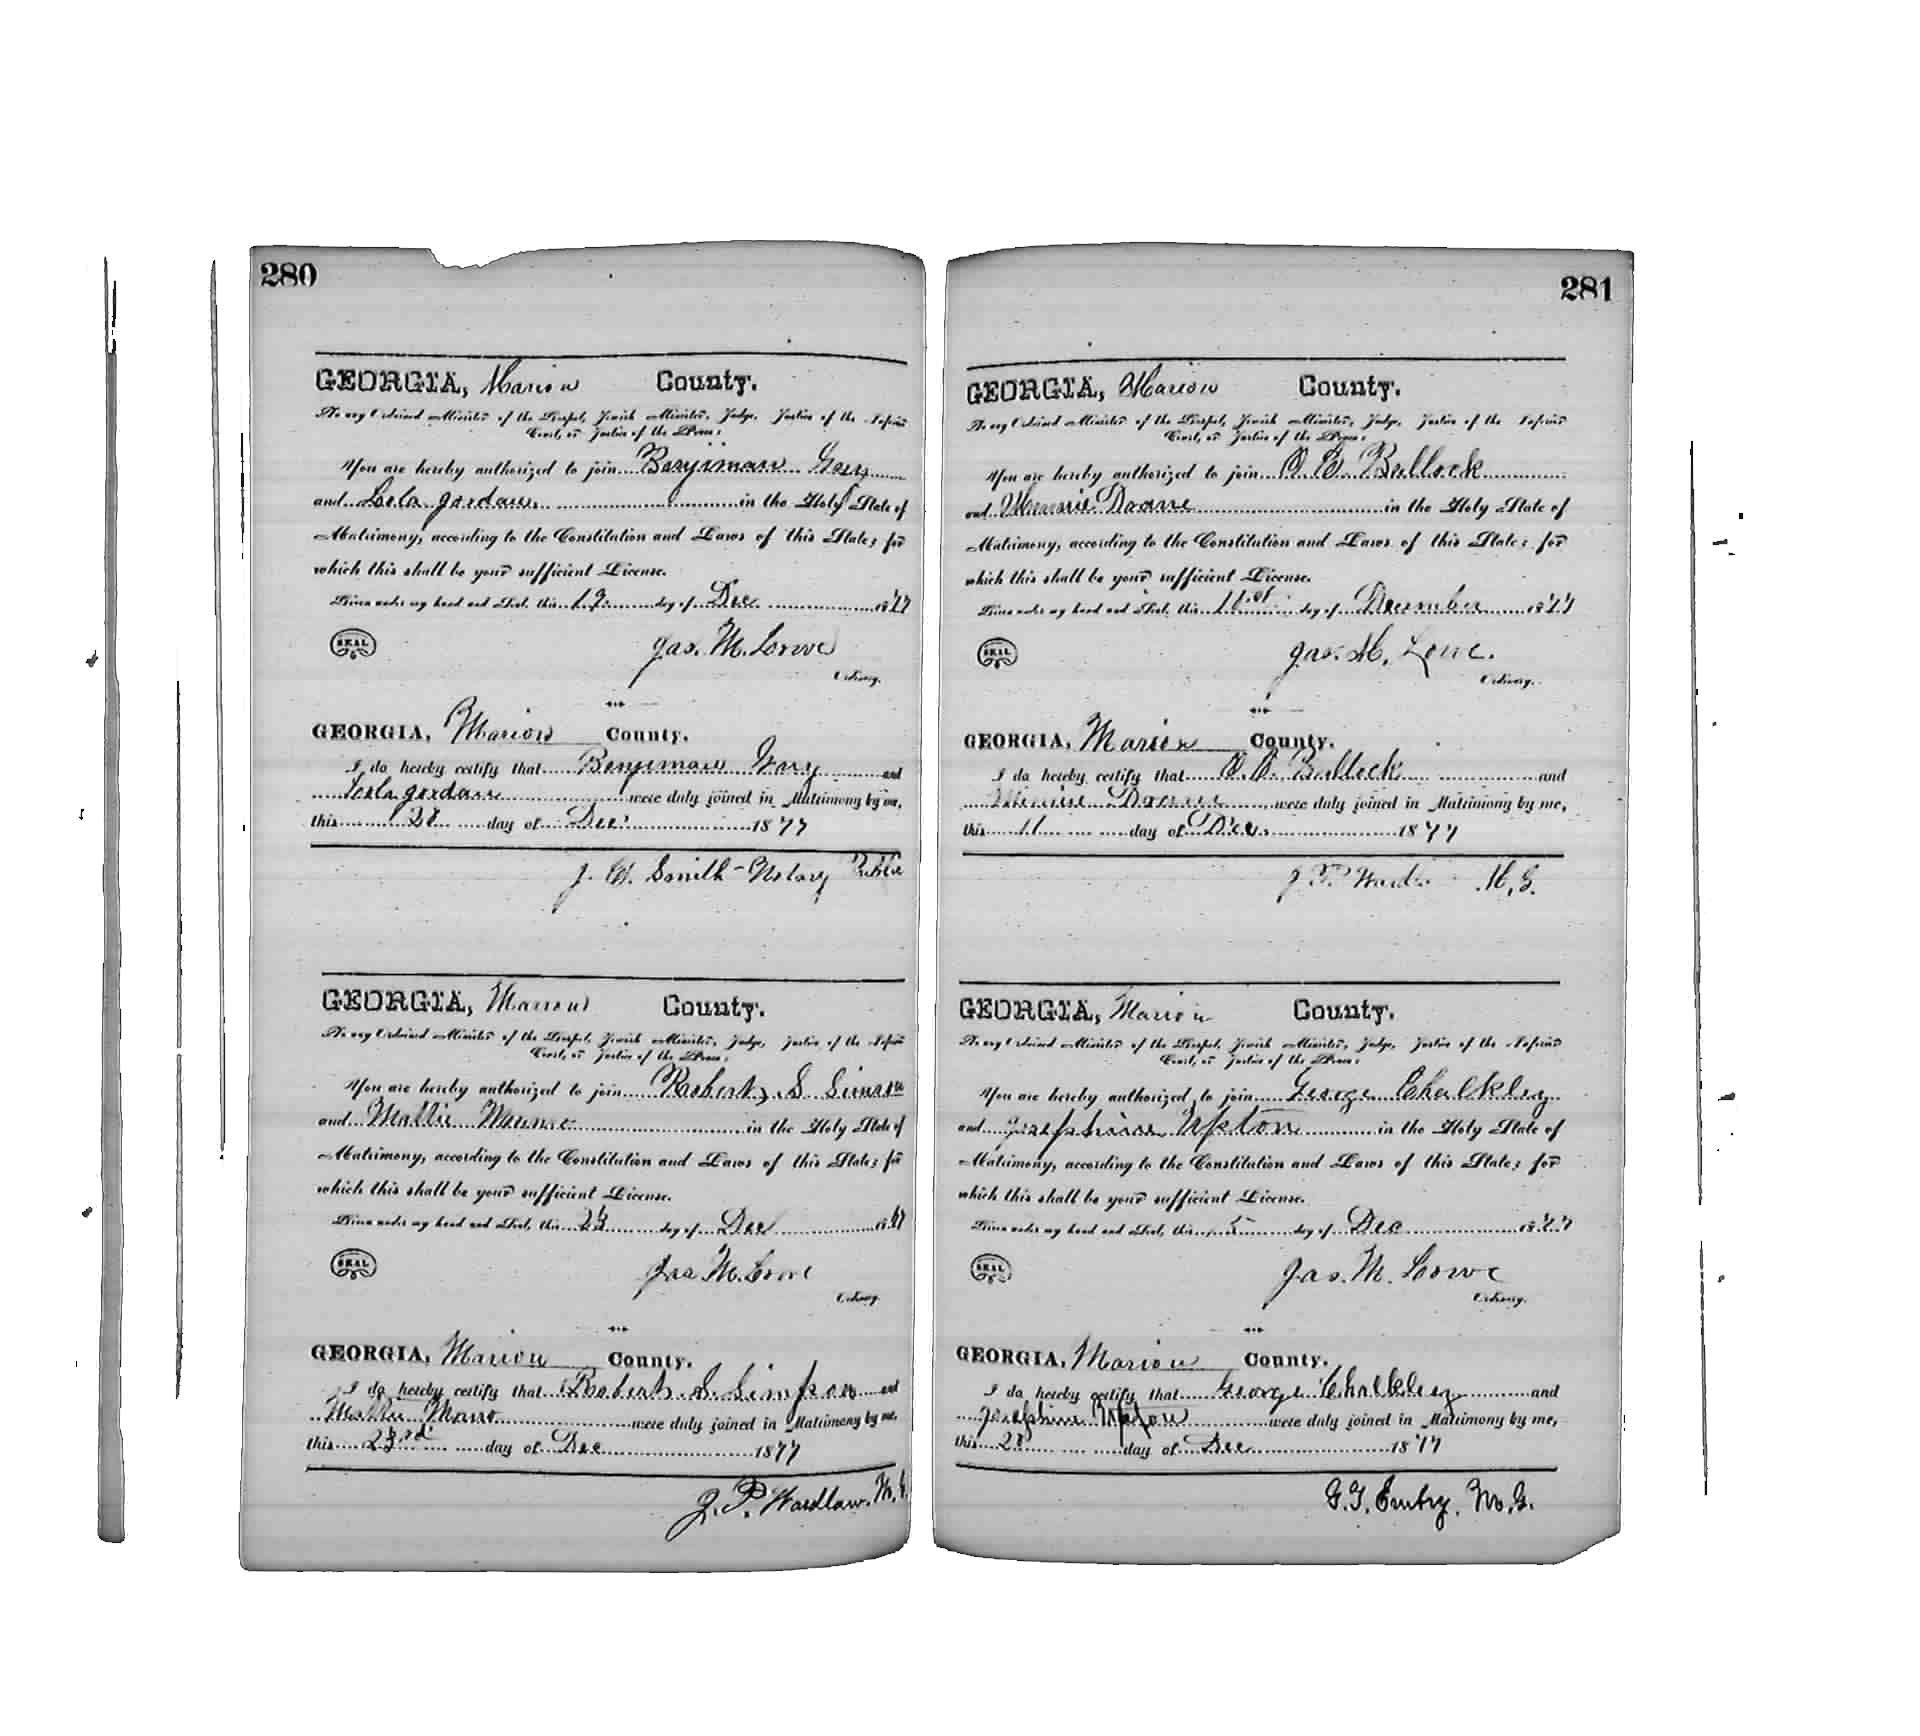 280
GEORGIA, Marion County.
To any Ordained Minister of the Gospel, Jewish Minister, Judge, Justice of the Inferior
Court, or Justice of the Peace:
You are hereby authorized to join Benjiman
and Lola Jordan in the Holy State of
Matrimony, according to the Constitution and Laws of this State; for
which this shall be your sufficient License.
Given under my hand and Seal, this day of Dec 1877
SEAL
Jas. M. Lowe
Ordinary.
GEORGIA, Marion County.
I do hereby certify that Benjiman and
Lola Jordan were duly joined in Matrimony by me,
this 28 day of Dec 1877
J. W. Smith - Notary Public
GEORGIA, Marion County.
To any Ordained Minister of the Gospel, Jewish Minister, Judge, Justice of the Inferior
Court, or Justice of the Peace:
You are hereby authorized to join Robert S
and Mattie in the Holy State of
Matrimony, according to the Constitution and Laws of this State; for
which this shall be your sufficient License.
Given under my hand and Seal, this day of Dec 18
SEAL
Jas M. Lowe
Ordinary.
GEORGIA, Marion County.
I do hereby certify that Robert S. Simpson and
Mattie were duly joined in Matrimony by me,
this 23rd day of Dec 1877
J. P. Wardlaw. M. G.
281
GEORGIA, Marion County.
To any Ordained Minister of the Gospel, Jewish Minister, Judge, Justice of the Inferior
Court, or Justice of the Peace:
You are hereby authorized to join Bullock
and Minnie Doane in the Holy State of
Matrimony, according to the Constitution and Laws of this State; for
which this shall be your sufficient License.
Given under my hand and Seal, this day of December 1877
SEAL
Jas. M. Lowe.
Ordinary.
GEORGIA, Marion County.
I do hereby certify that Bullock and
Minnie were duly joined in Matrimony by me,
this 11 day of Dec. 1877
J. P. M. G.
GEORGIA, Marion County.
To any Ordained Minister of the Gospel, Jewish Minister, Judge, Justice of the Inferior
Court, or Justice of the Peace:
You are hereby authorized to join George Chalkley
and Josephine Upton in the Holy State of
Matrimony, according to the Constitution and Laws of this State; for
which this shall be your sufficient License.
Given under my hand and Seal, this 5 day of Dec 1877
SEAL
Jas. M. Lowe
Ordinary.
GEORGIA, Marion County.
I do hereby certify that George Chalkley and
Josephine Upton were duly joined in Matrimony by me,
this 28 day of Dec 1877
G. T. Embry. M. G.